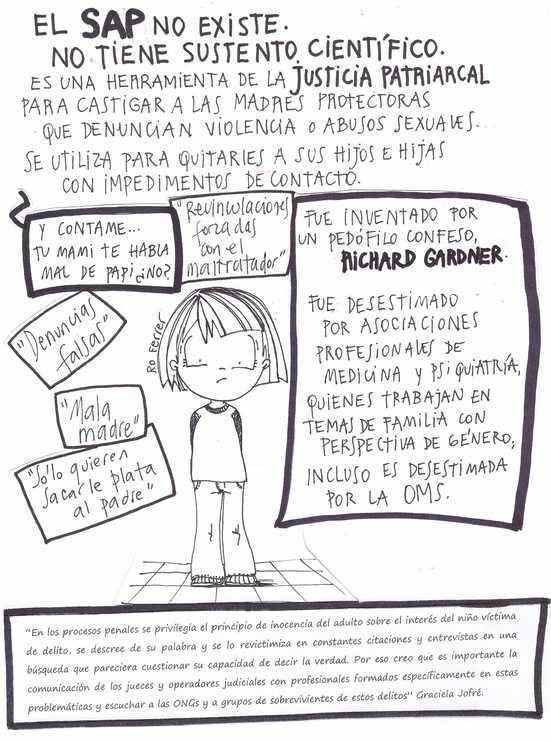 EL SAP NO EXISTE.
NO TIENE SUSTENTO CIENTÍFICO.
ES UNA HERRAMIENTA DE LA JUSTICIA PATRIARCAL
PARA CASTIGAR A LAS MADRES PROTECTORAS
QUE DENUNCIAN VIOLENCIA O ABUSOS SEXUALES.
SE UTILIZA PARA QUITARLES A SUS HIJOS E HIJAS
CON IMPEDIMENTOS DE CONTACTO.
Y CONTAME...
TU MAMI TE HABLA
MAL DE PAPI ¿NO?
"Revinculaciones
forzadas
con el
maltratador"
FUE INVENTADO POR
UN PEDÓFILO CONFESO,
RICHARD GARDNER.
FUE DESESTIMADO
POR ASOCIACIONES
PROFESIONALES DE
MEDICINA Y PSIQUIATRÍA,
QUIENES TRABAJAN EN
TEMAS DE FAMILIA CON
PERSPECTIVA DE GÉNERO,
INCLUSO ES DESESTIMADA
POR LA OMS.
"Denuncias
falsas"
Ro Ferrer
"Mala
madre"
"Sólo quieren
sacarle plata
al padre"
"En los procesos penales se privilegia el principio de inocencia del adulto sobre el interés del niño víctima
de delito, se descree de su palabra y se lo revictimiza en constantes citaciones y entrevistas en una
búsqueda que pareciera cuestionar su capacidad de decir la verdad. Por eso creo que es importante la
comunicación de los jueces y operadores judiciales con profesionales formados específicamente en estas
problemáticas y escuchar a las ONGs y a grupos de sobrevivientes de estos delitos" Graciela Jofré.